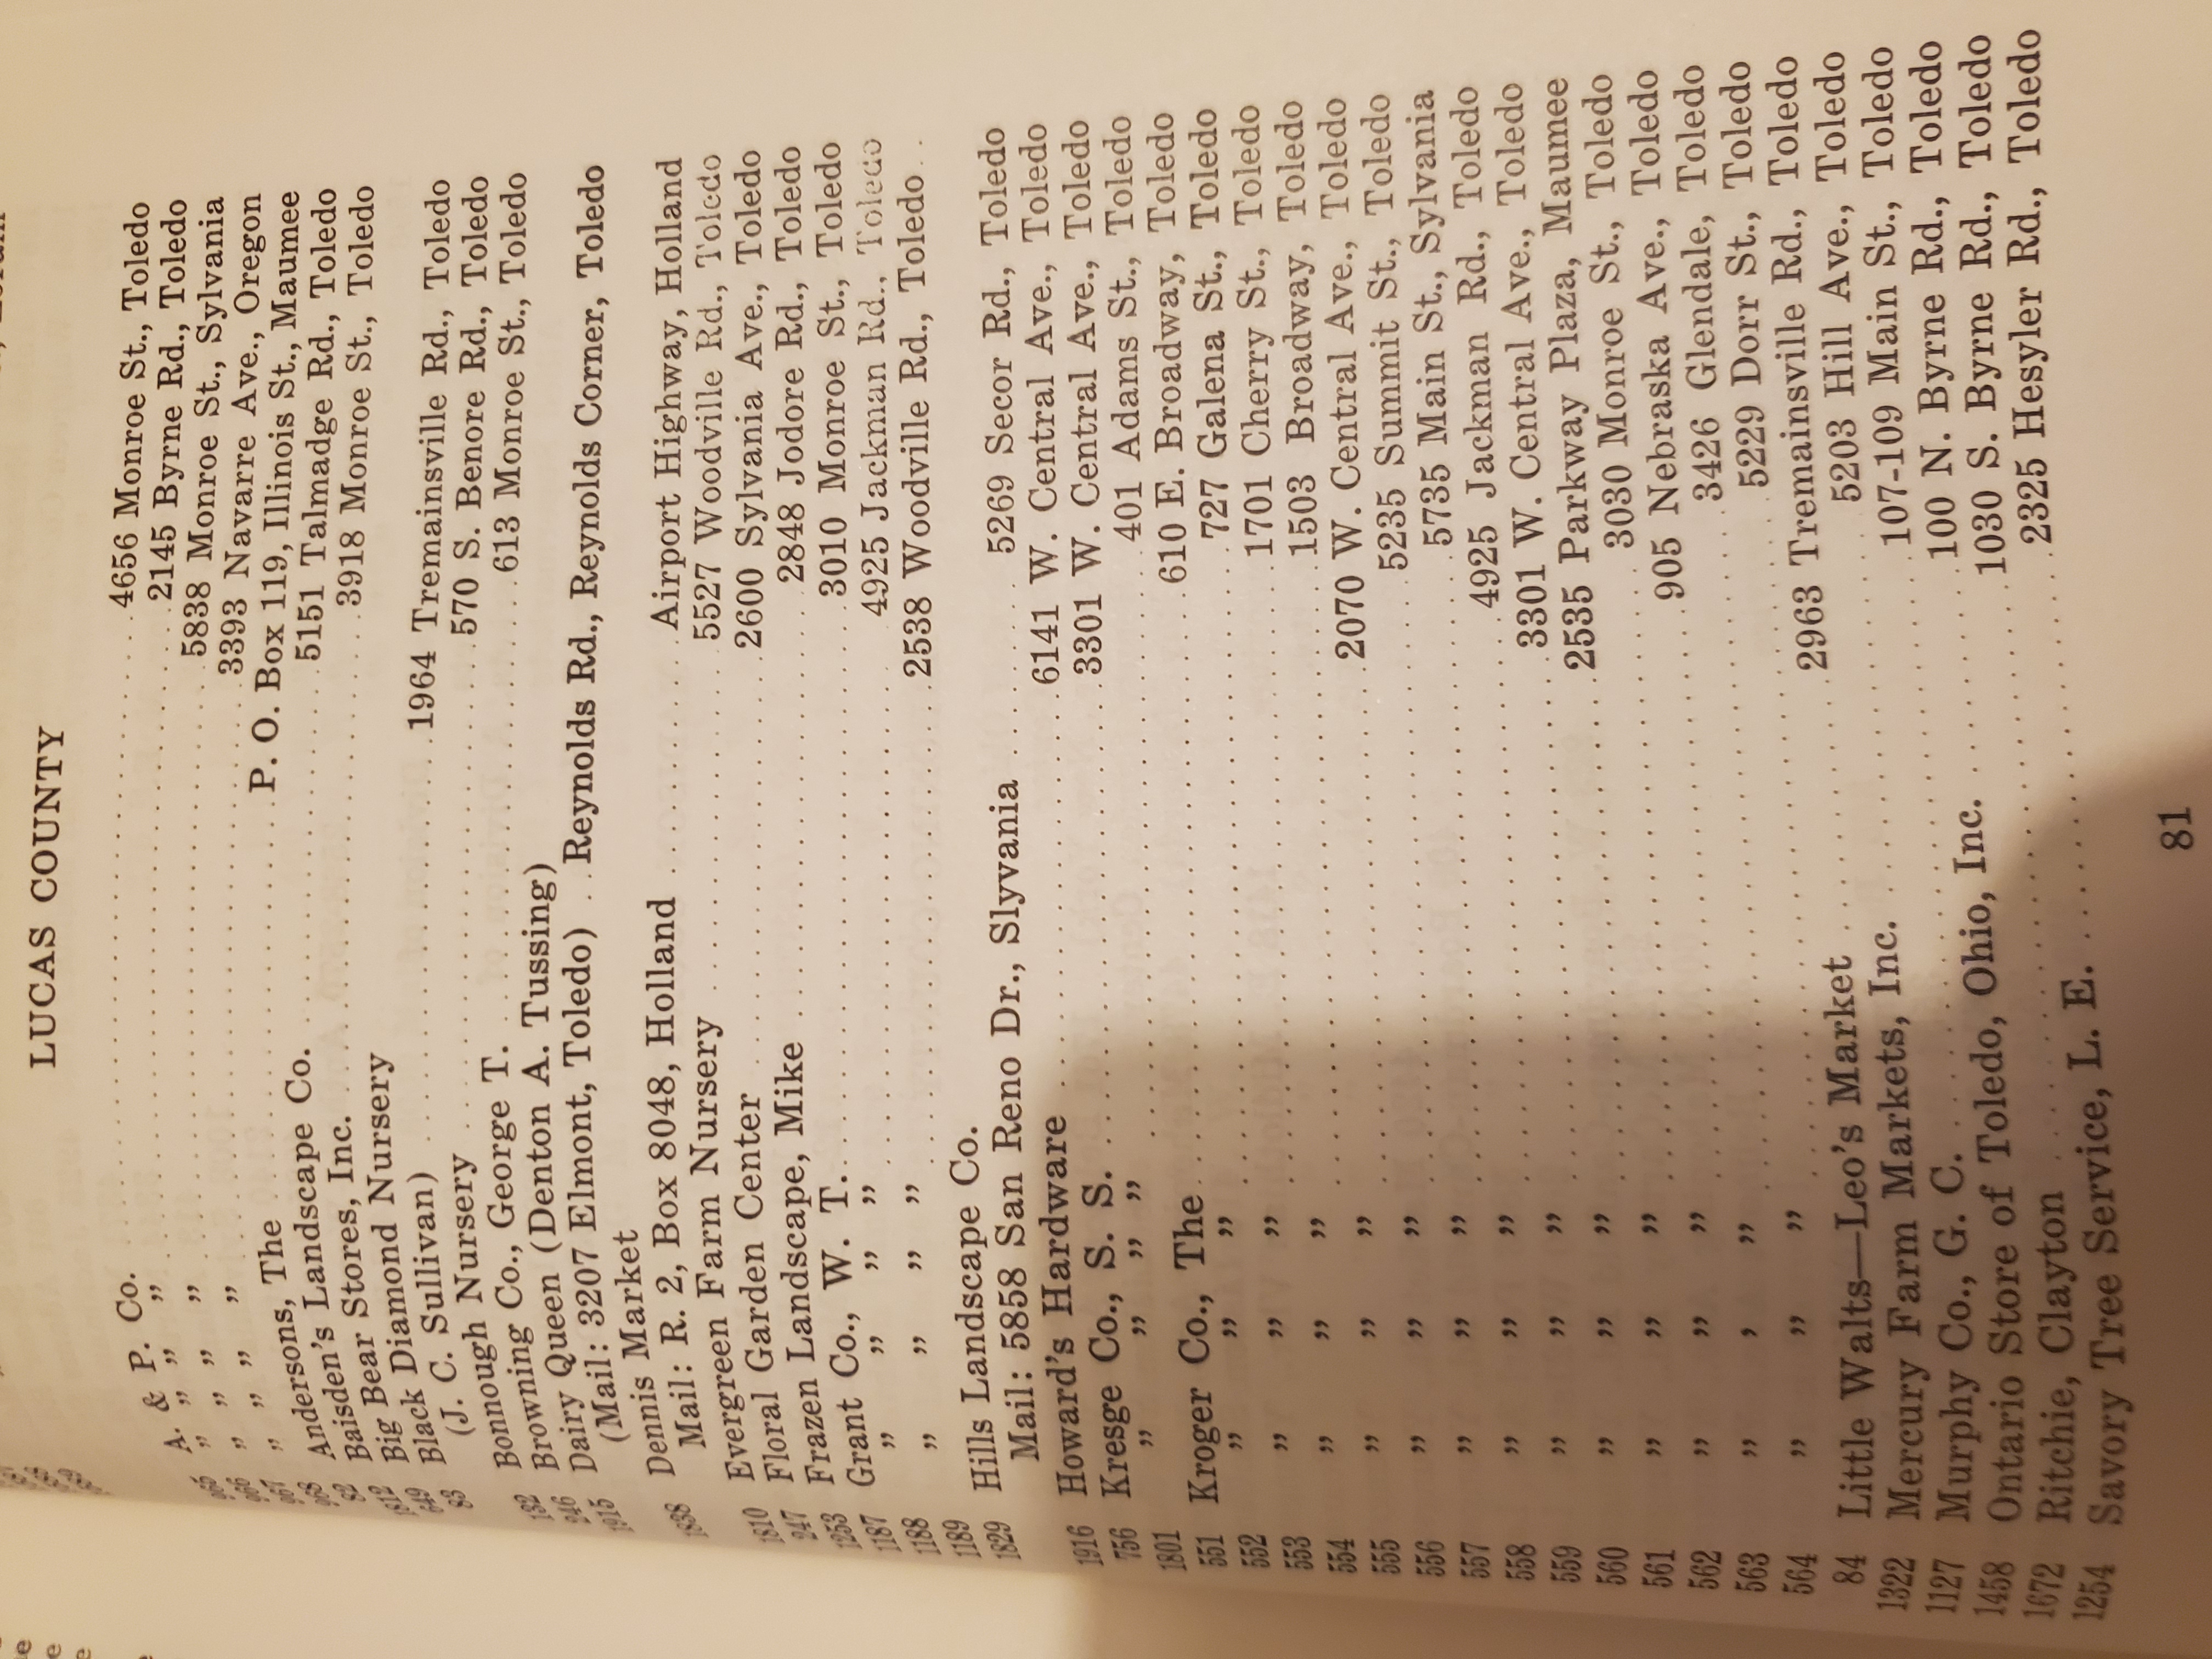 LUCAS COUNTY
965 A. & P. Co. 4656 Monroe St., Toledo
966 " " " " 2145 Byrne Rd., Toledo
967 " " " " 5838 Monroe St., Sylvania
968 " " " " 3393 Navarre Ave., Oregon
82 Andersons, The P. O. Box 119, Illinois St., Maumee
1812 Baisden's Landscape Co. 5151 Talmadge Rd., Toledo
649 Big Bear Stores, Inc. 3918 Monroe St., Toledo
83 Black Diamond Nursery
(J. C. Sullivan) 1964 Tremainsville Rd., Toledo
132 Bonnough Nursery 570 S. Benore Rd., Toledo
246 Browning Co., George T. 613 Monroe St., Toledo
1915 Dairy Queen (Denton A. Tussing)
(Mail: 3207 Elmont, Toledo) Reynolds Rd., Reynolds Corner, Toledo
1838 Dennis Market
Mail: R. 2, Box 8048, Holland Airport Highway, Holland
1810 Evergreen Farm Nursery 5527 Woodville Rd., Toledo
247 Floral Garden Center 2600 Sylvania Ave., Toledo
1253 Frazen Landscape, Mike 2848 Jodore Rd., Toledo
1187 Grant Co., W. T. 3010 Monroe St., Toledo
1188 " " " " 4925 Jackman Rd., Toledo
1189 " " " " 2538 Woodville Rd., Toledo
1829 Hills Landscape Co.
Mail: 5858 San Reno Dr., Slyvania 5269 Secor Rd., Toledo
1916 Howard's Hardware 6141 W. Central Ave., Toledo
756 Kresge Co., S. S. 3301 W. Central Ave., Toledo
1801 " " " " 401 Adams St., Toledo
551 Kroger Co., The 610 E. Broadway, Toledo
552 " " " 727 Galena St., Toledo
553 " " " 1701 Cherry St., Toledo
554 " " " 1503 Broadway, Toledo
555 " " " 2070 W. Central Ave., Toledo
556 " " " 5235 Summit St., Toledo
557 " " " 5735 Main St., Sylvania
558 " " " 4925 Jackman Rd., Toledo
559 " " " 3301 W. Central Ave., Toledo
560 " " " 2535 Parkway Plaza, Maumee
561 " " " 3030 Monroe St., Toledo
562 " " " 905 Nebraska Ave., Toledo
563 " ' " 3426 Glendale, Toledo
564 " " " 5229 Dorr St., Toledo
84 Little Walts—Leo's Market 2963 Tremainsville Rd., Toledo
1322 Mercury Farm Markets, Inc. 5203 Hill Ave., Toledo
1127 Murphy Co., G. C. 107-109 Main St., Toledo
1458 Ontario Store of Toledo, Ohio, Inc. 100 N. Byrne Rd., Toledo
1672 Ritchie, Clayton 1030 S. Byrne Rd., Toledo
1254 Savory Tree Service, L. E. 2325 Hesyler Rd., Toledo
81